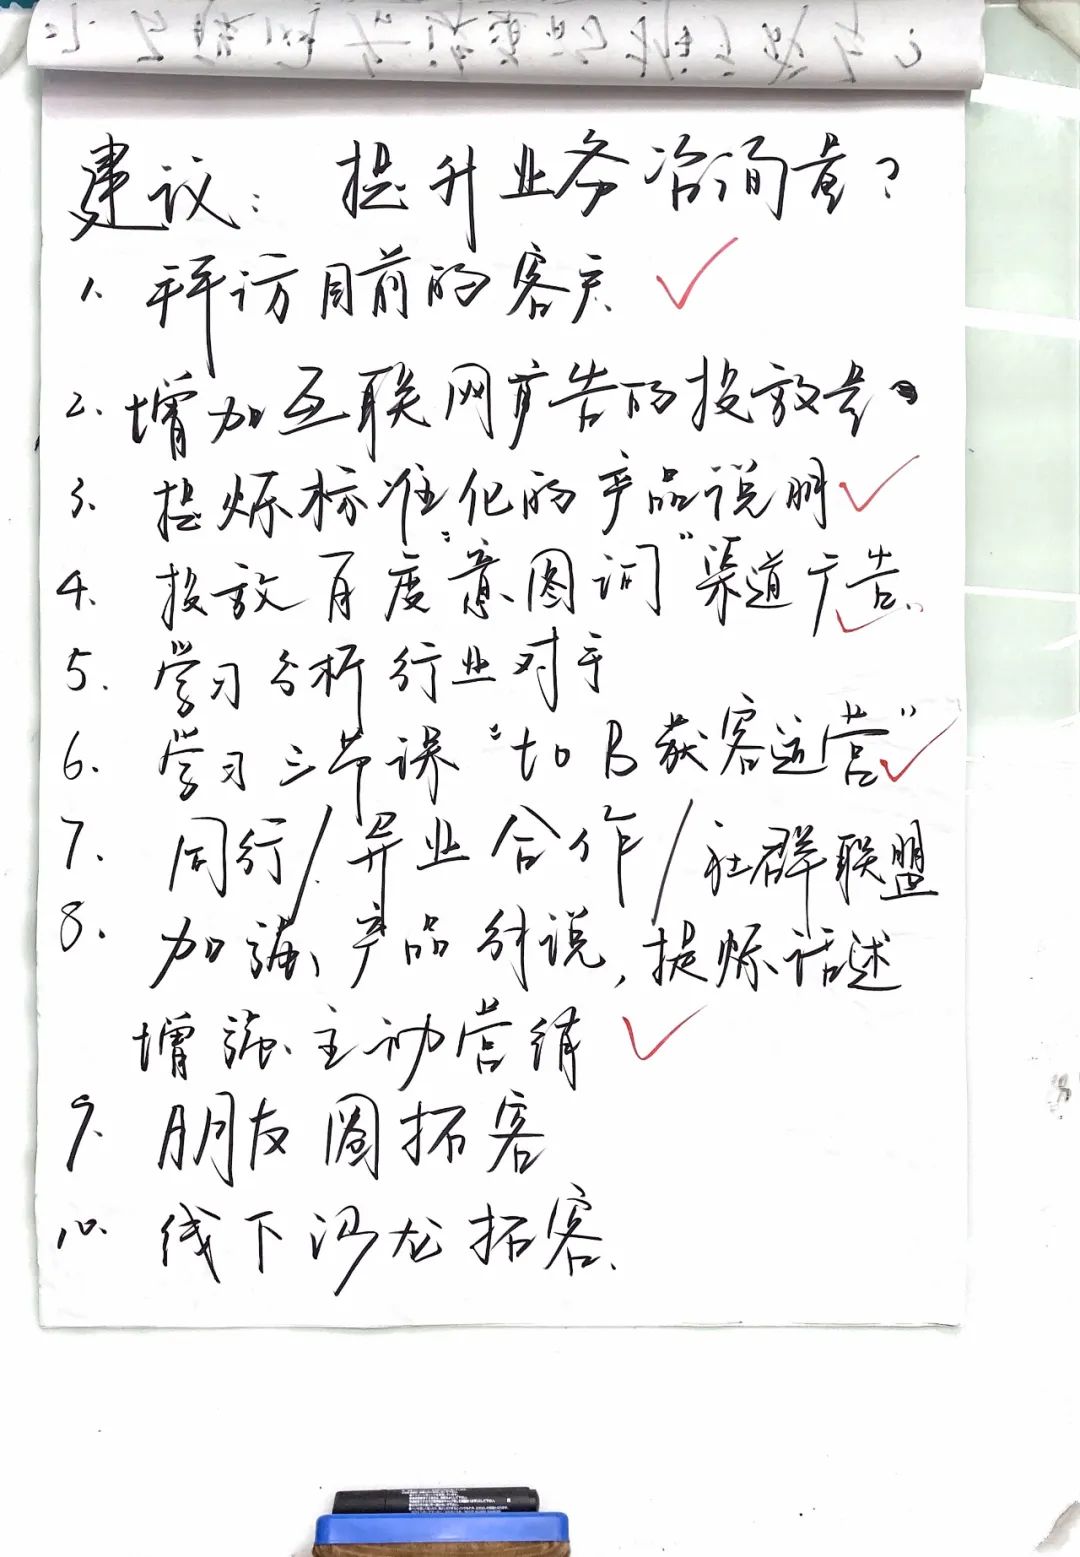 建议: 提升业务洽询量?
1. 拜访目前的客户.
2. 增加互联网广告的投放量.
3. 提炼标准化的产品说明
4. 投放百度"意图词"渠道广告.
5. 学习分析行业对手
6. 学习三节课"to B获客运营"
7. 同行/异业合作/社群联盟
8. 加强产品解说,提炼话述
增强主动营销
9. 朋友圈拓客
10. 线下沙龙拓客.